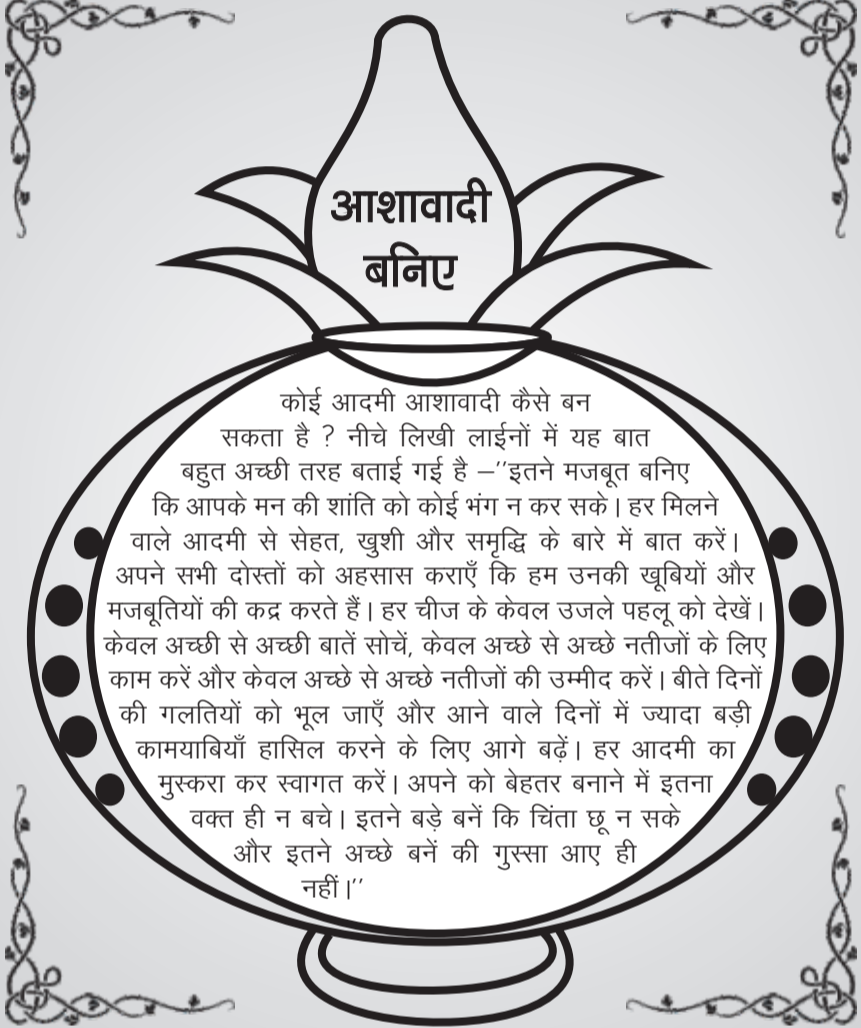 आशावादी
बनिए
कोई आदमी आशावादी कैसे बन
सकता है ? नीचे लिखी लाईनों में यह बात
बहुत अच्छी तरह बताई गई है –’’इतने मजबूत बनिए
कि आपके मन की शांति को कोई भंग न कर सके। हर मिलने
वाले आदमी से सेहत, खुशी और समृद्धि के बारे में बात करें।
अपने सभी दोस्तों को अहसास कराएँ कि हम उनकी खूबियों और
मजबूतियों की कद्र करते हैं। हर चीज के केवल उजले पहलू को देखें।
केवल अच्छी से अच्छी बातें सोचें, केवल अच्छे से अच्छे नतीजों के लिए
काम करें और केवल अच्छे से अच्छे नतीजों की उम्मीद करें। बीते दिनों
की गलतियों को भूल जाएँ और आने वाले दिनों में ज्यादा बड़ी
कामयाबियाँ हासिल करने के लिए आगे बढ़ें। हर आदमी का
मुस्करा कर स्वागत करें। अपने को बेहतर बनाने में इतना
वक्त ही न बचे। इतने बड़े बनें कि चिंता छू न सके
और इतने अच्छे बनें की गुस्सा आए ही
नहीं।’’